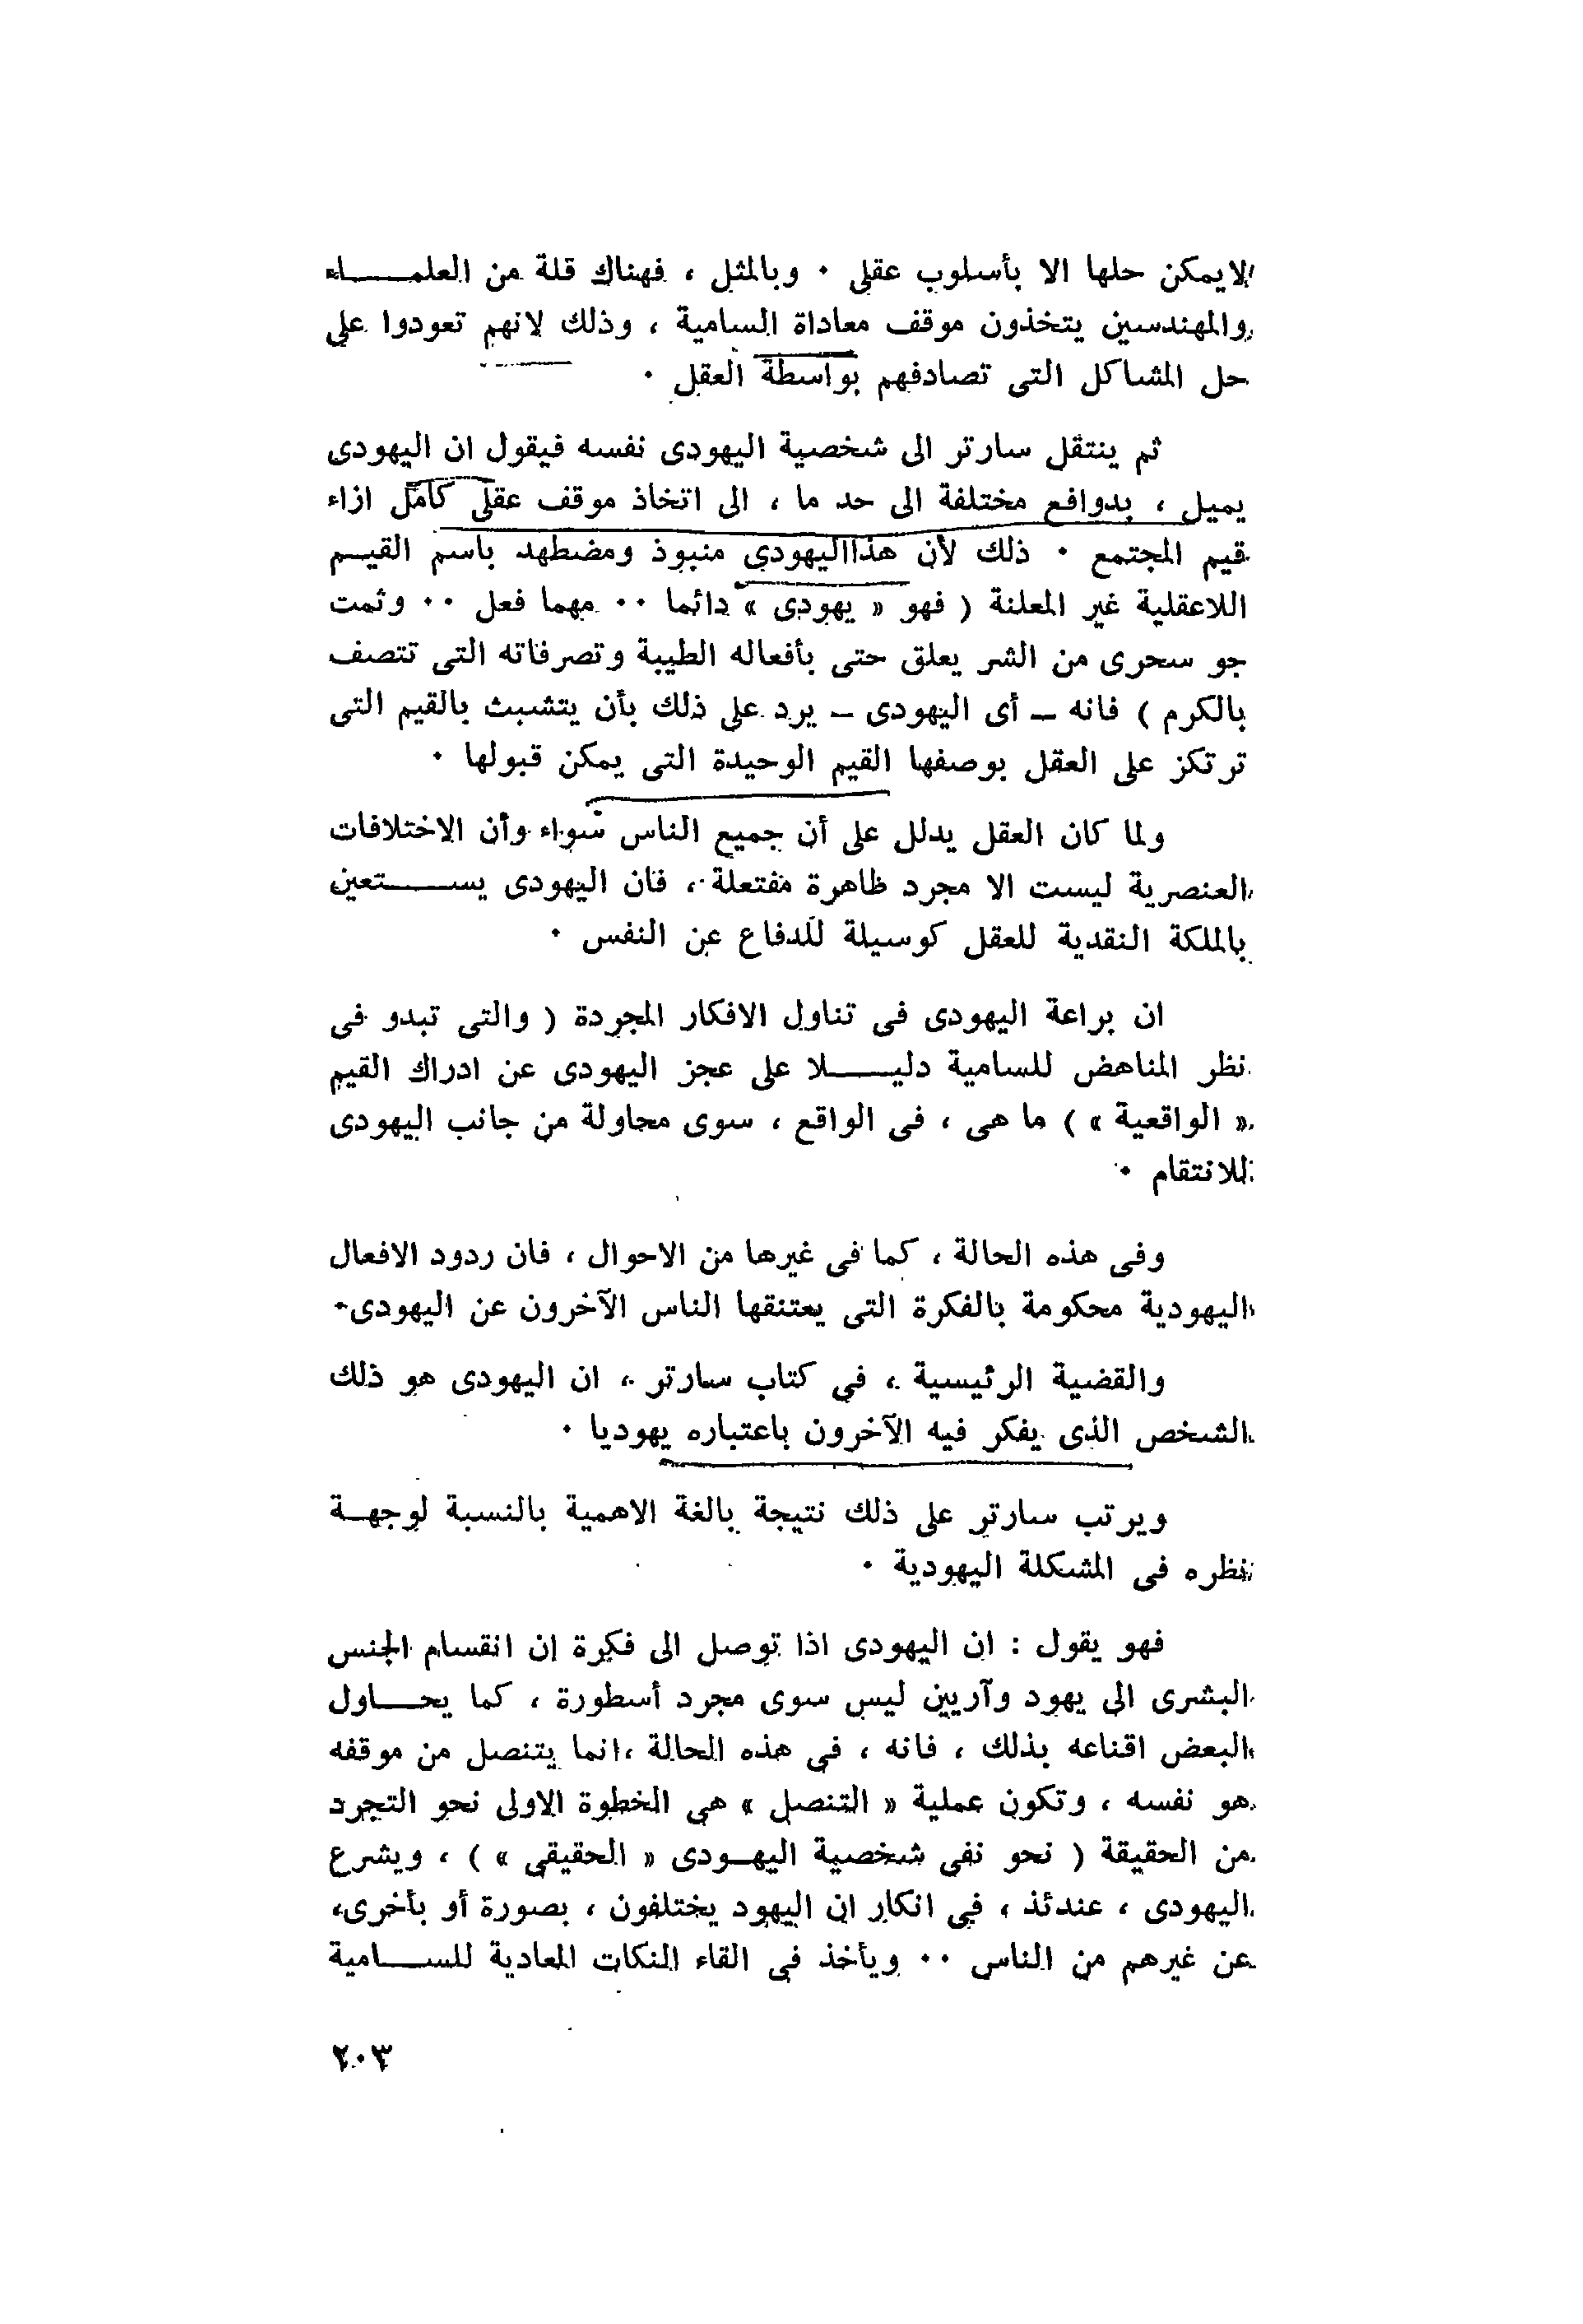 لايمكن حلها الا بأسلوب عقلى ٠ وبالمثل ، فهناك قلة من العلمـــــاء
والمهندسين يتخذون موقف معاداة السامية ، وذلك لانهم تعودوا على
حل المشاكل التى تصادفهم بواسطة العقل ٠
ثم ينتقل سارتر الى شخصية اليهودى نفسه فيقول ان اليهودى
يميل ، بدوافع مختلفة الى حد ما ، الى اتخاذ موقف عقلى كامل ازاء
قيم المجتمع ٠ ذلك لأن هذااليهودى منبوذ ومضطهد باسم القيـــم
اللاعقلية غير المعلنة ( فهو « يهودى » دائما ٠٠ مهما فعل ٠٠ وثمت
جو سحرى من الشر يعلق حتى بأفعاله الطيبة وتصرفاته التى تتصف
بالكرم ) فانه ــ أى اليهودى ــ يرد على ذلك بأن يتشبث بالقيم التى
ترتكز على العقل بوصفها القيم الوحيدة التى يمكن قبولها ٠
ولما كان العقل يدلل على أن جميع الناس سواء وأن الاختلافات
العنصرية ليست الا مجرد ظاهرة مفتعلة ، فان اليهودى يســـــتعين
بالملكة النقدية للعقل كوسيلة للدفاع عن النفس ٠
ان براعة اليهودى فى تناول الافكار المجردة ( والتى تبدو فى
نظر المناهض للسامية دليـــــلا على عجز اليهودى عن ادراك القيم
« الواقعية » ) ما هى ، فى الواقع ، سوى محاولة من جانب اليهودى
للانتقام ٠
وفى هذه الحالة ، كما فى غيرها من الاحوال ، فان ردود الافعال
اليهودية محكومة بالفكرة التى يعتنقها الناس الآخرون عن اليهودى٠
والقضية الرئيسية ، في كتاب سارتر ، ان اليهودى هو ذلك
الشخص الذى يفكر فيه الآخرون باعتباره يهوديا ٠
ويرتب سارتر على ذلك نتيجة بالغة الاهمية بالنسبة لوجهـــة
نظره فى المشكلة اليهودية ٠
فهو يقول : ان اليهودى اذا توصل الى فكرة ان انقسام الجنس
البشرى الى يهود وآريين ليس سوى مجرد أسطورة ، كما يحـــاول
البعض اقناعه بذلك ، فانه ، فى هذه الحالة ،انما يتنصل من موقفه
هو نفسه ، وتكون عملية « التنصل » هى الخطوة الاولى نحو التجرد
من الحقيقة ( نحو نفى شخصية اليهـــودى « الحقيقى » ) ، ويشرع
اليهودى ، عندئذ ، فى انكار ان اليهود يختلفون ، بصورة أو بأخرى،
عن غيرهم من الناس ٠٠ ويأخذ فى القاء النكات المعادية للســـامية
٢٠٣